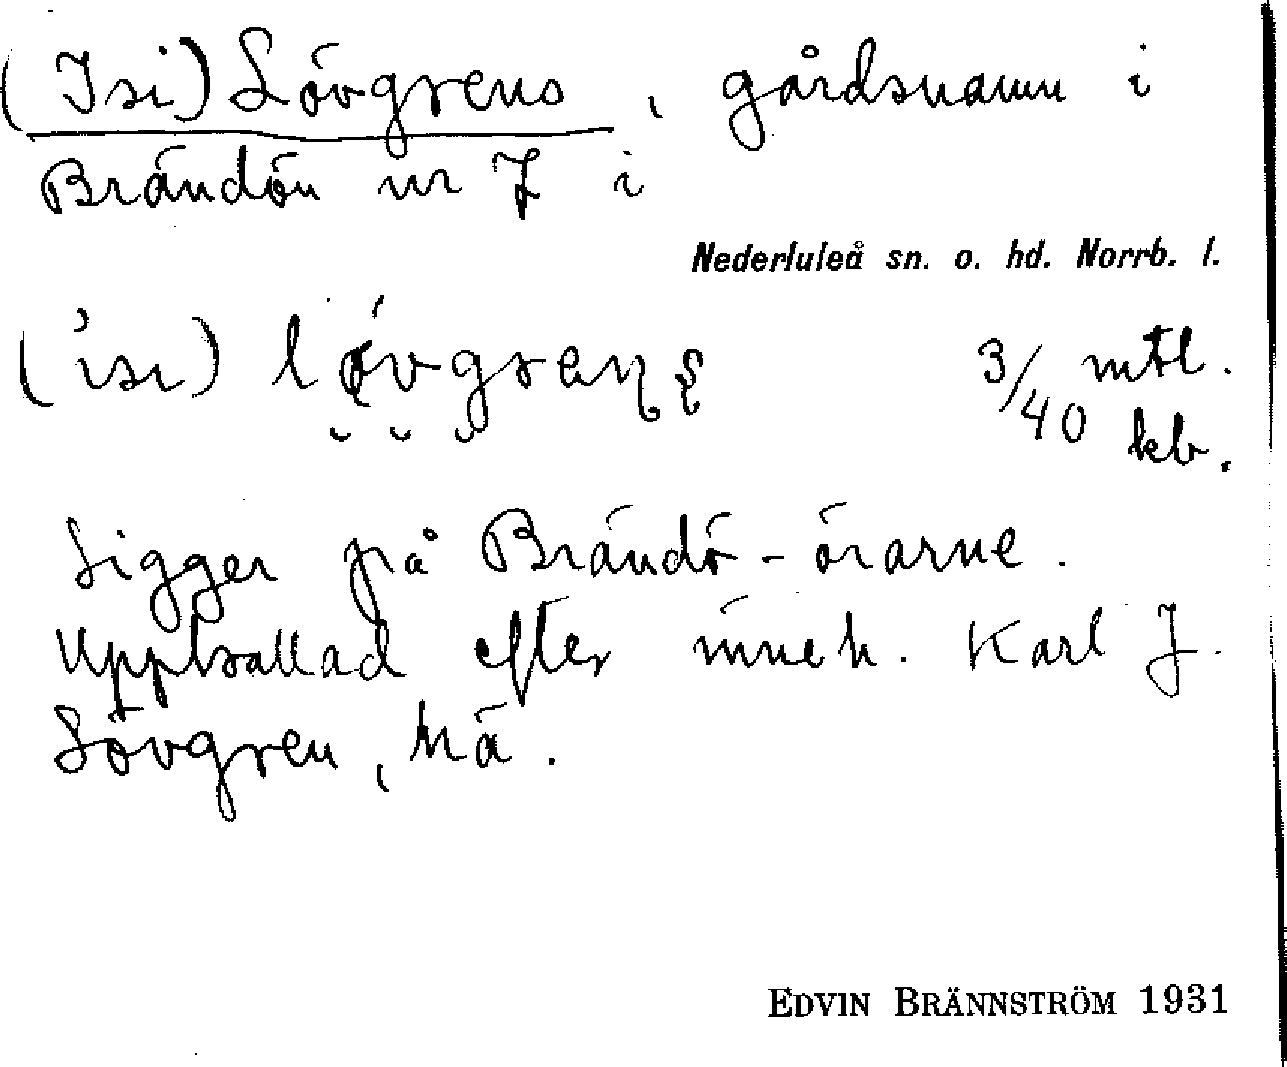 (Isi) Lövgrens, gårdsnamn i
Brändön nr 7 i
Nederluleå sn. o. hd. Norrb. l.
(ɩsi) løvgrens 3/40 mtl.
kb.
Ligger på Brändö-örarne.
Uppkallad efter inneh. Karl J.
Lövgren, Nä.
EDVIN BRÄNNSTRÖM 1931